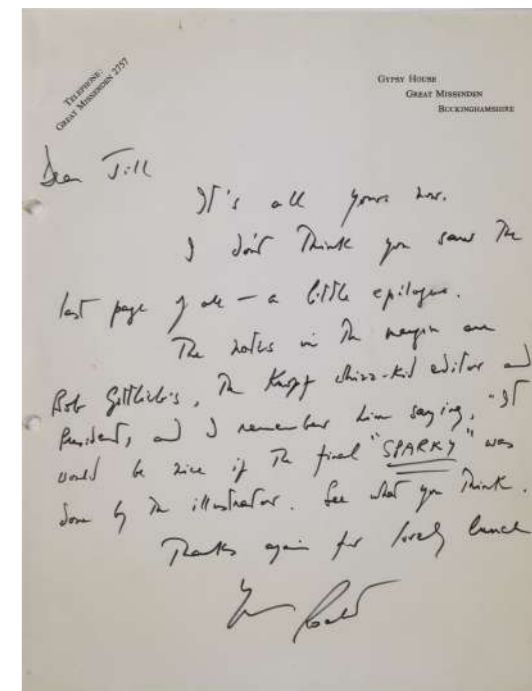 TELEPHONE:
GREAT MISSENDEN 2757
GIPSY HOUSE
GREAT MISSENDEN
BUCKINGHAMSHIRE
Dear Jill
It's all yours now.
I don't think you saw the
last page of all — a little epilogue.
The notes in the margin are
Bob Gottlieb's, the Knopf whizz-kid editor and
President, and I remember him saying, "It
would be nice if the final "SPARKY" was
done by the illustrator. See what you think.
Thanks again for lovely lunch
Roald